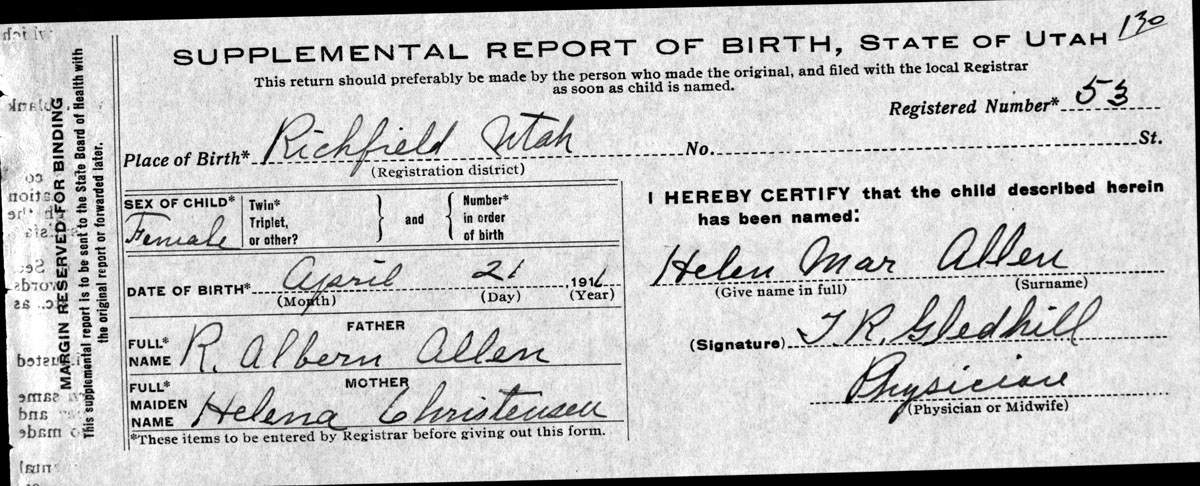 130
SUPPLEMENTAL REPORT OF BIRTH, STATE OF UTAH
This return should preferably be made by the person who made the original, and filed with the local Registrar
as soon as child is named.
Registered Number* 53
Place of Birth* Richfield Utah No. St.
(Registration district)
MARGIN RESERVED FOR BINDING
This supplemental report is to be sent to the State Board of Health with
the original report or forwarded later.
SEX OF CHILD* Female
Twin*
Triplet,
or other?
and
Number*
in order
of birth
DATE OF BIRTH* April 21 1916
(Month) (Day) (Year)
FATHER
FULL*
NAME R. Albern Allen
MOTHER
FULL*
MAIDEN
NAME Helena Christensen
*These items to be entered by Registrar before giving out this form.
I HEREBY CERTIFY that the child described herein
has been named:
Helen Mar Allen
(Give name in full) (Surname)
(Signature) T. R. Gledhill
Physician
(Physician or Midwife)